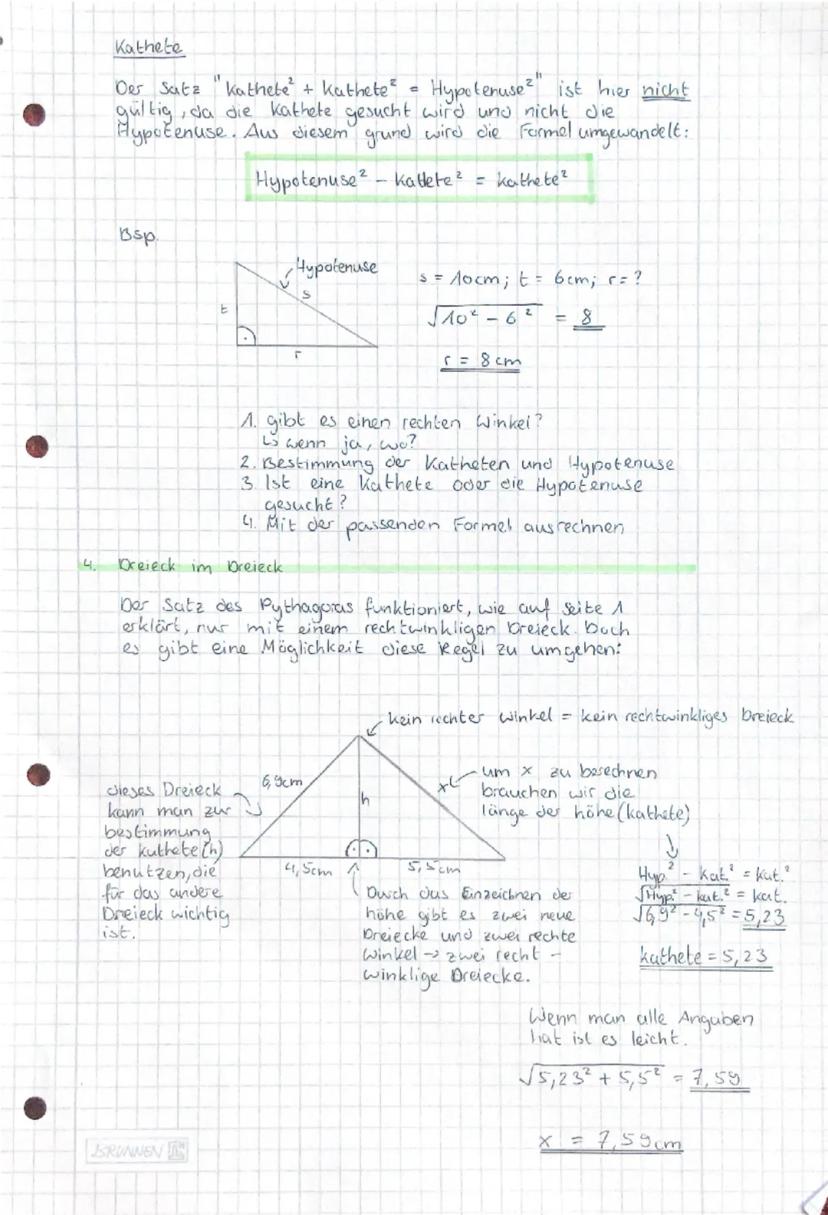 Kathete
Der Satz "Kathete² + Kathete² = Hypotenuse²" ist hier nicht
gültig, da die Kathete gesucht wird und nicht die
Hypotenuse. Aus diesem grund wird die Formel umgewandelt:
Hypotenuse² - Kathete² = Kathete²
Bsp.
Hypotenuse
s
t
r
s = 10cm; t = 6cm; r = ?
√10² - 6² = 8
r = 8cm
1. gibt es einen rechten Winkel?
↳ wenn ja, wo?
2. Bestimmung der Katheten und Hypotenuse
3. Ist eine Kathete oder die Hypotenuse
gesucht?
4. Mit der passenden Formel ausrechnen
4. Dreieck im Dreieck
Der Satz des Pythagoras funktioniert, wie auf Seite 1
erklärt, nur mit einem rechtwinkligen Dreieck. Doch
es gibt eine Möglichkeit diese Regel zu umgehen:
kein rechter Winkel = kein rechtwinkliges Dreieck
6,9cm
h
x
4,5cm
5,5cm
dieses Dreieck
kann man zur
bestimmung
der kathete (h)
benutzen, die
für das andere
Dreieck wichtig
ist.
um x zu berechnen
brauchen wir die
länge der höhe (kathete)
Durch das Einzeichnen der
höhe gibt es zwei neue
Dreiecke und zwei rechte
Winkel → zwei recht -
winklige Dreiecke.
Hyp.² - Kat.² = Kat.²
√Hyp.² - kat.² = kat.
√6,9² - 4,5² = 5,23
kathete = 5,23
Wenn man alle Angaben
hat ist es leicht.
√5,23² + 5,5² = 7,59
x = 7,59cm
BRUNNEN